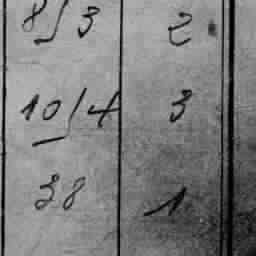 8/3 2
10/4 3
38 1